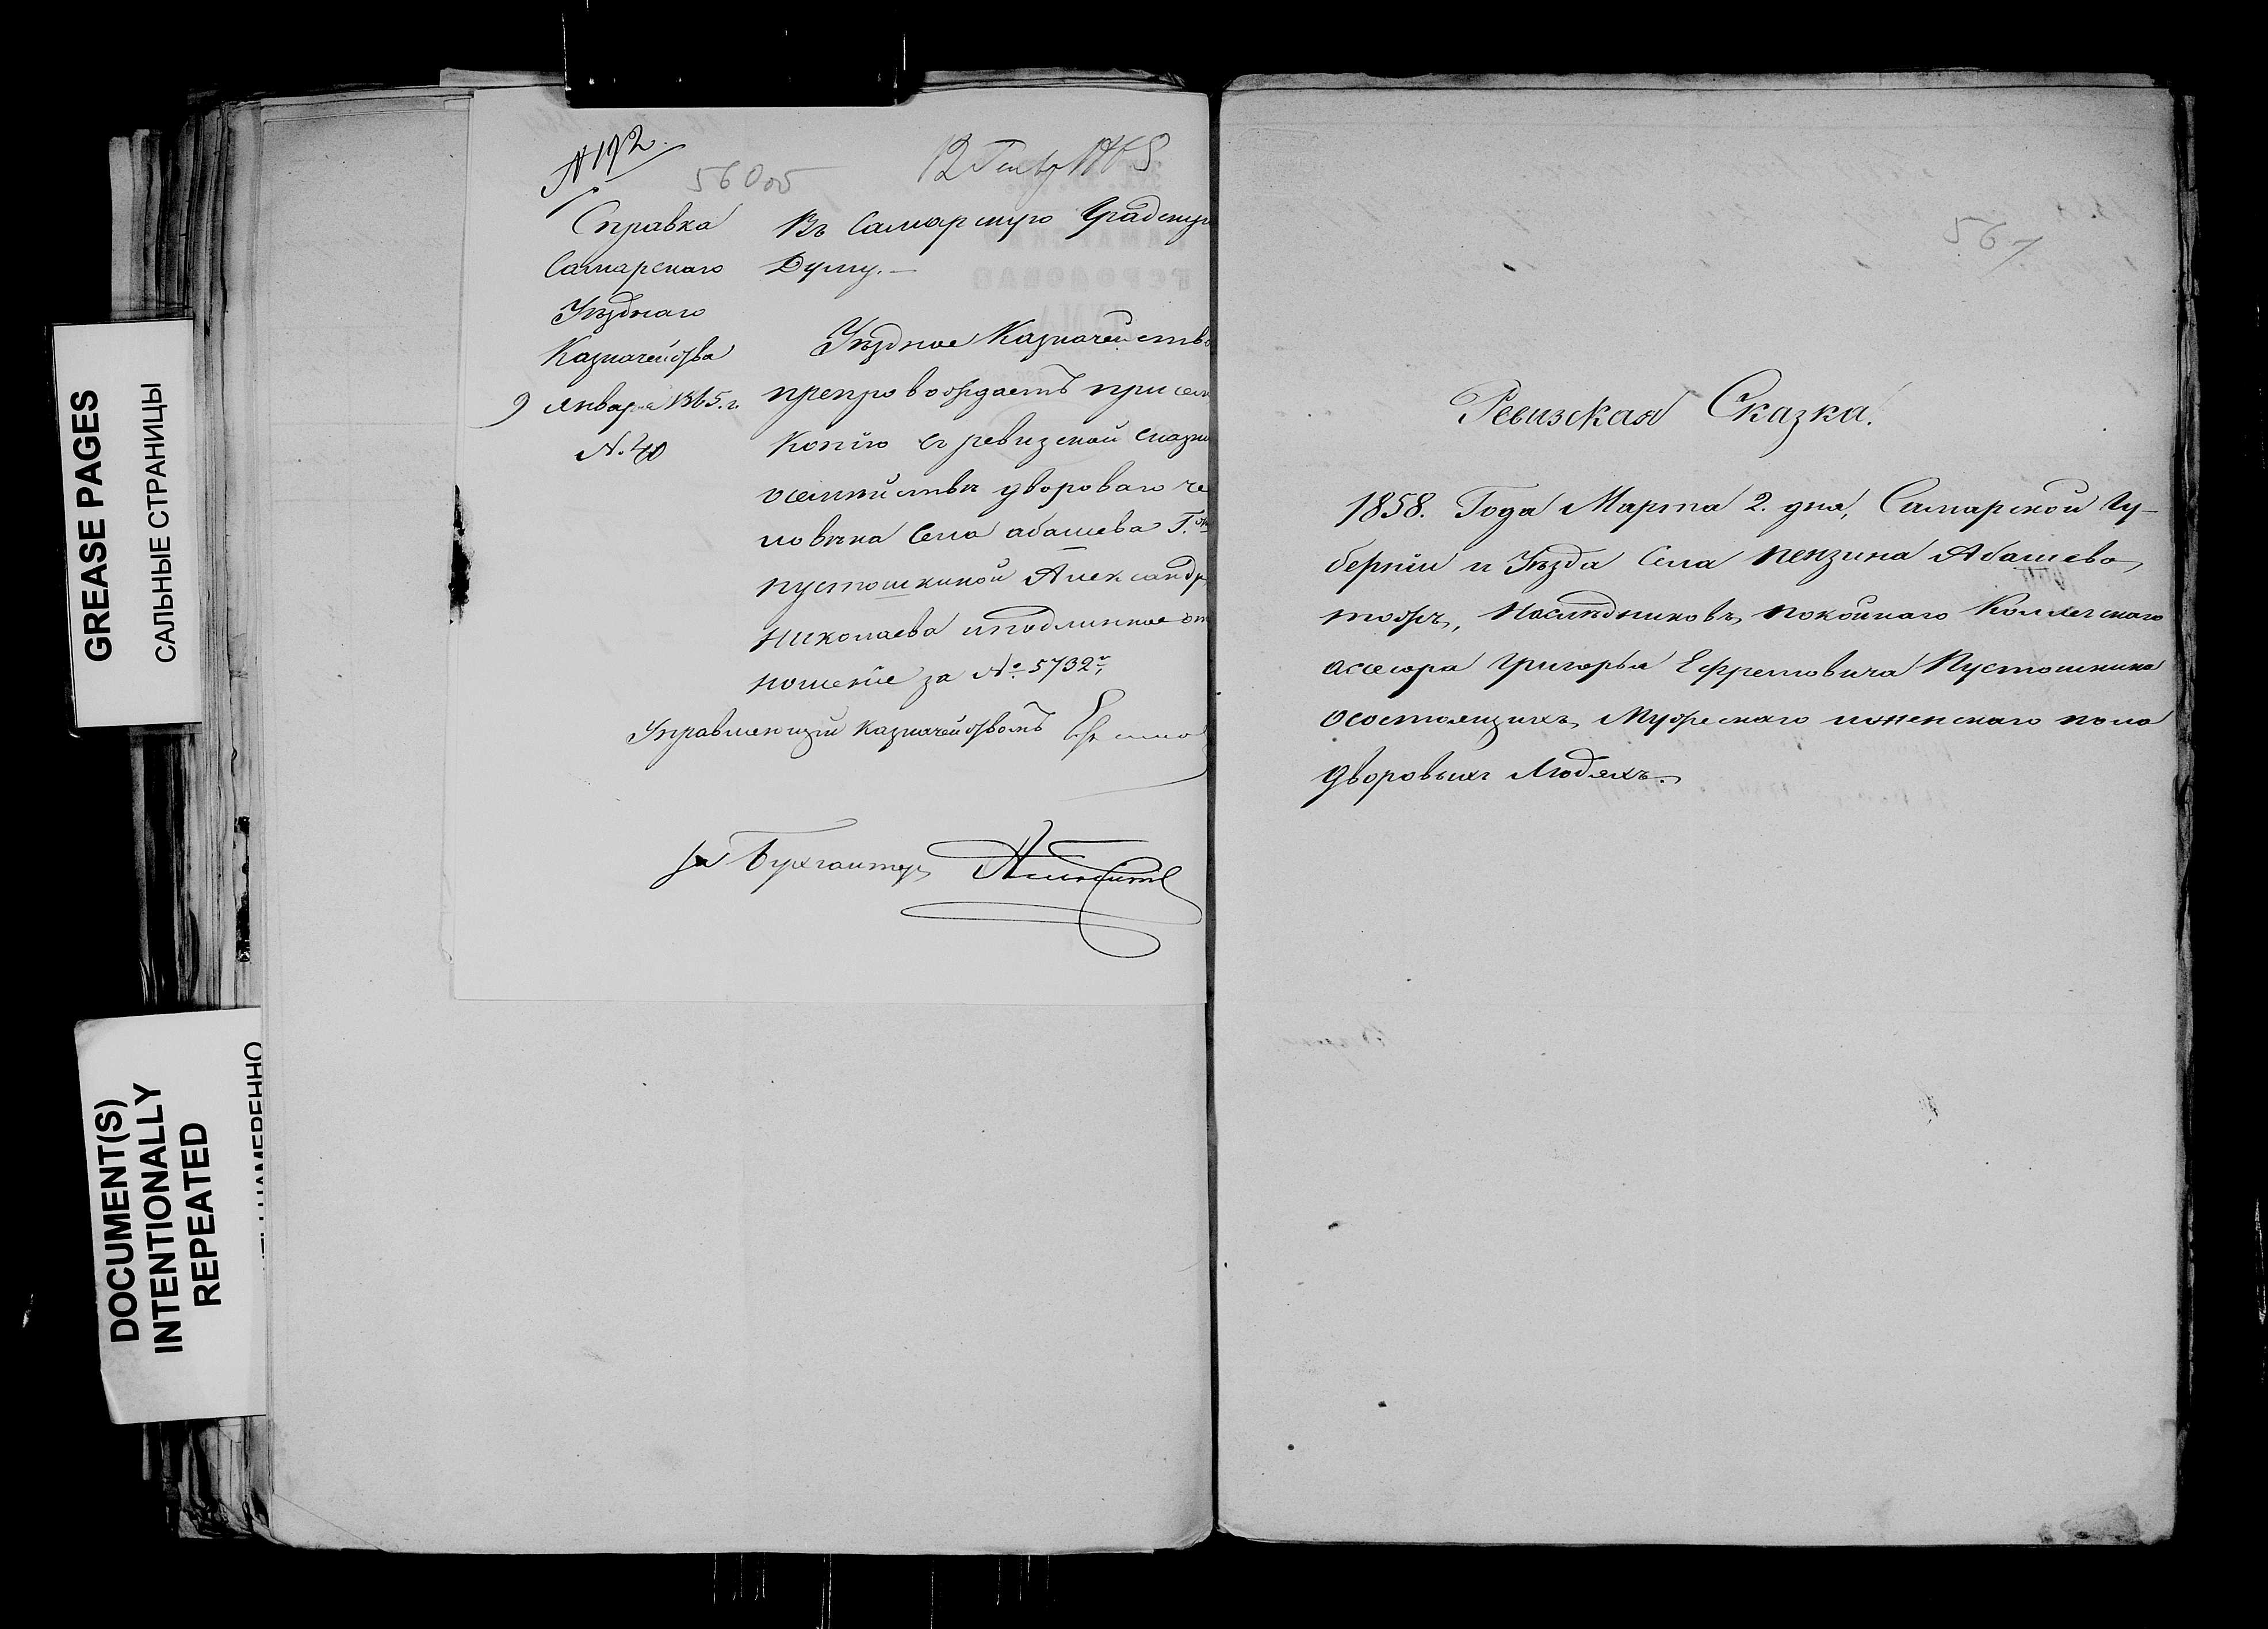 GREASE PAGES
САЛЬНЫЕ СТРАНИЦЫ
DOCUMENT(S)
INTENTIONALLY
REPEATED
№ 192.
560об
12 Генвр 1865
Справка
Самарскаго
Уѣзднаго
Казначейства
9 января 1865. г.
№. 40
Въ Самарскую Градскую
Думу. —
Уѣздное Казначейство
препровождаетъ при сем
копію съ ревизской сказки
о семействѣ двороваго че
ловѣка Села абашева Г.жи
пустошкиной Александр
Николаева и подлинное от
ношеніе за №. 5732м,
Управляющій казначействомъ
за Бухгалтер
561
Ревизская Сказка.
1858. Года Марта 2. дня, Самарской Гу-
берніи и Уѣзда Села Пензина Абашево
тожъ, Наслѣдниковъ покойнаго Коллежскаго
ассесора Григорья Ефремовича Пустошкина
о состоящихъ Мужескаго и женскаго пола
дворовыхъ Людяхъ.